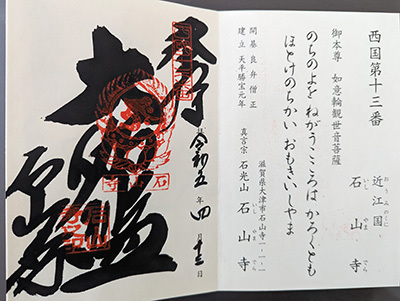 西国第十三番
近江国
おうみのくに
石山寺
いしやまでら
御本尊 如意輪観世音菩薩
のちのよを ねがうこころは かろくとも
ほとけのちかい おもきいしやま
滋賀県大津市石山寺一-一-一
開基 良弁僧正
建立 天平勝宝元年
真言宗 石光山 石山寺
奉拝
令和五年四月十三日
大伽藍
石山寺